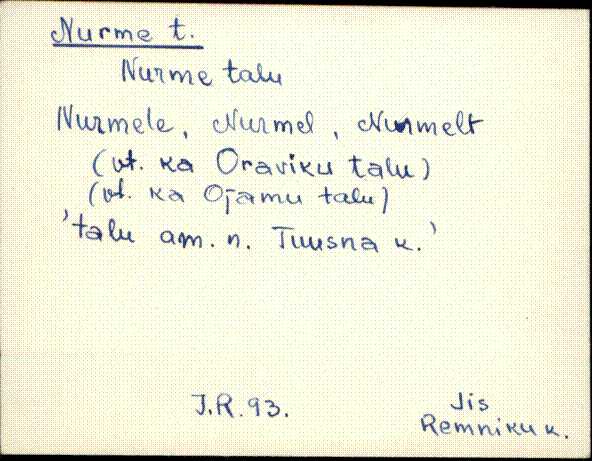 Nurme t.
Nurme talu
Nurmele, Nurmel, Nurmelt
(vt. ka Oraviku talu)
(vt. ka Ojamu talu)
'talu am. n. Tuusna k.'
J.R. 93.
Jis
Remniku k.